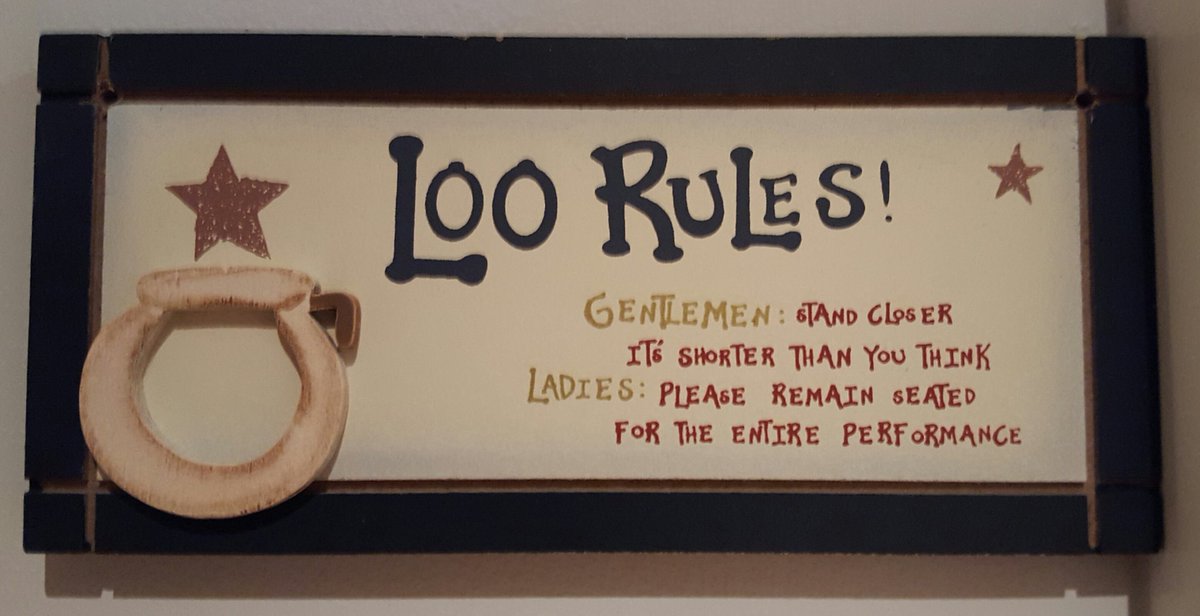 LOO RULES!
GENTLEMEN: STAND CLOSER
IT'S SHORTER THAN YOU THINK
LADIES: PLEASE REMAIN SEATED
FOR THE ENTIRE PERFORMANCE